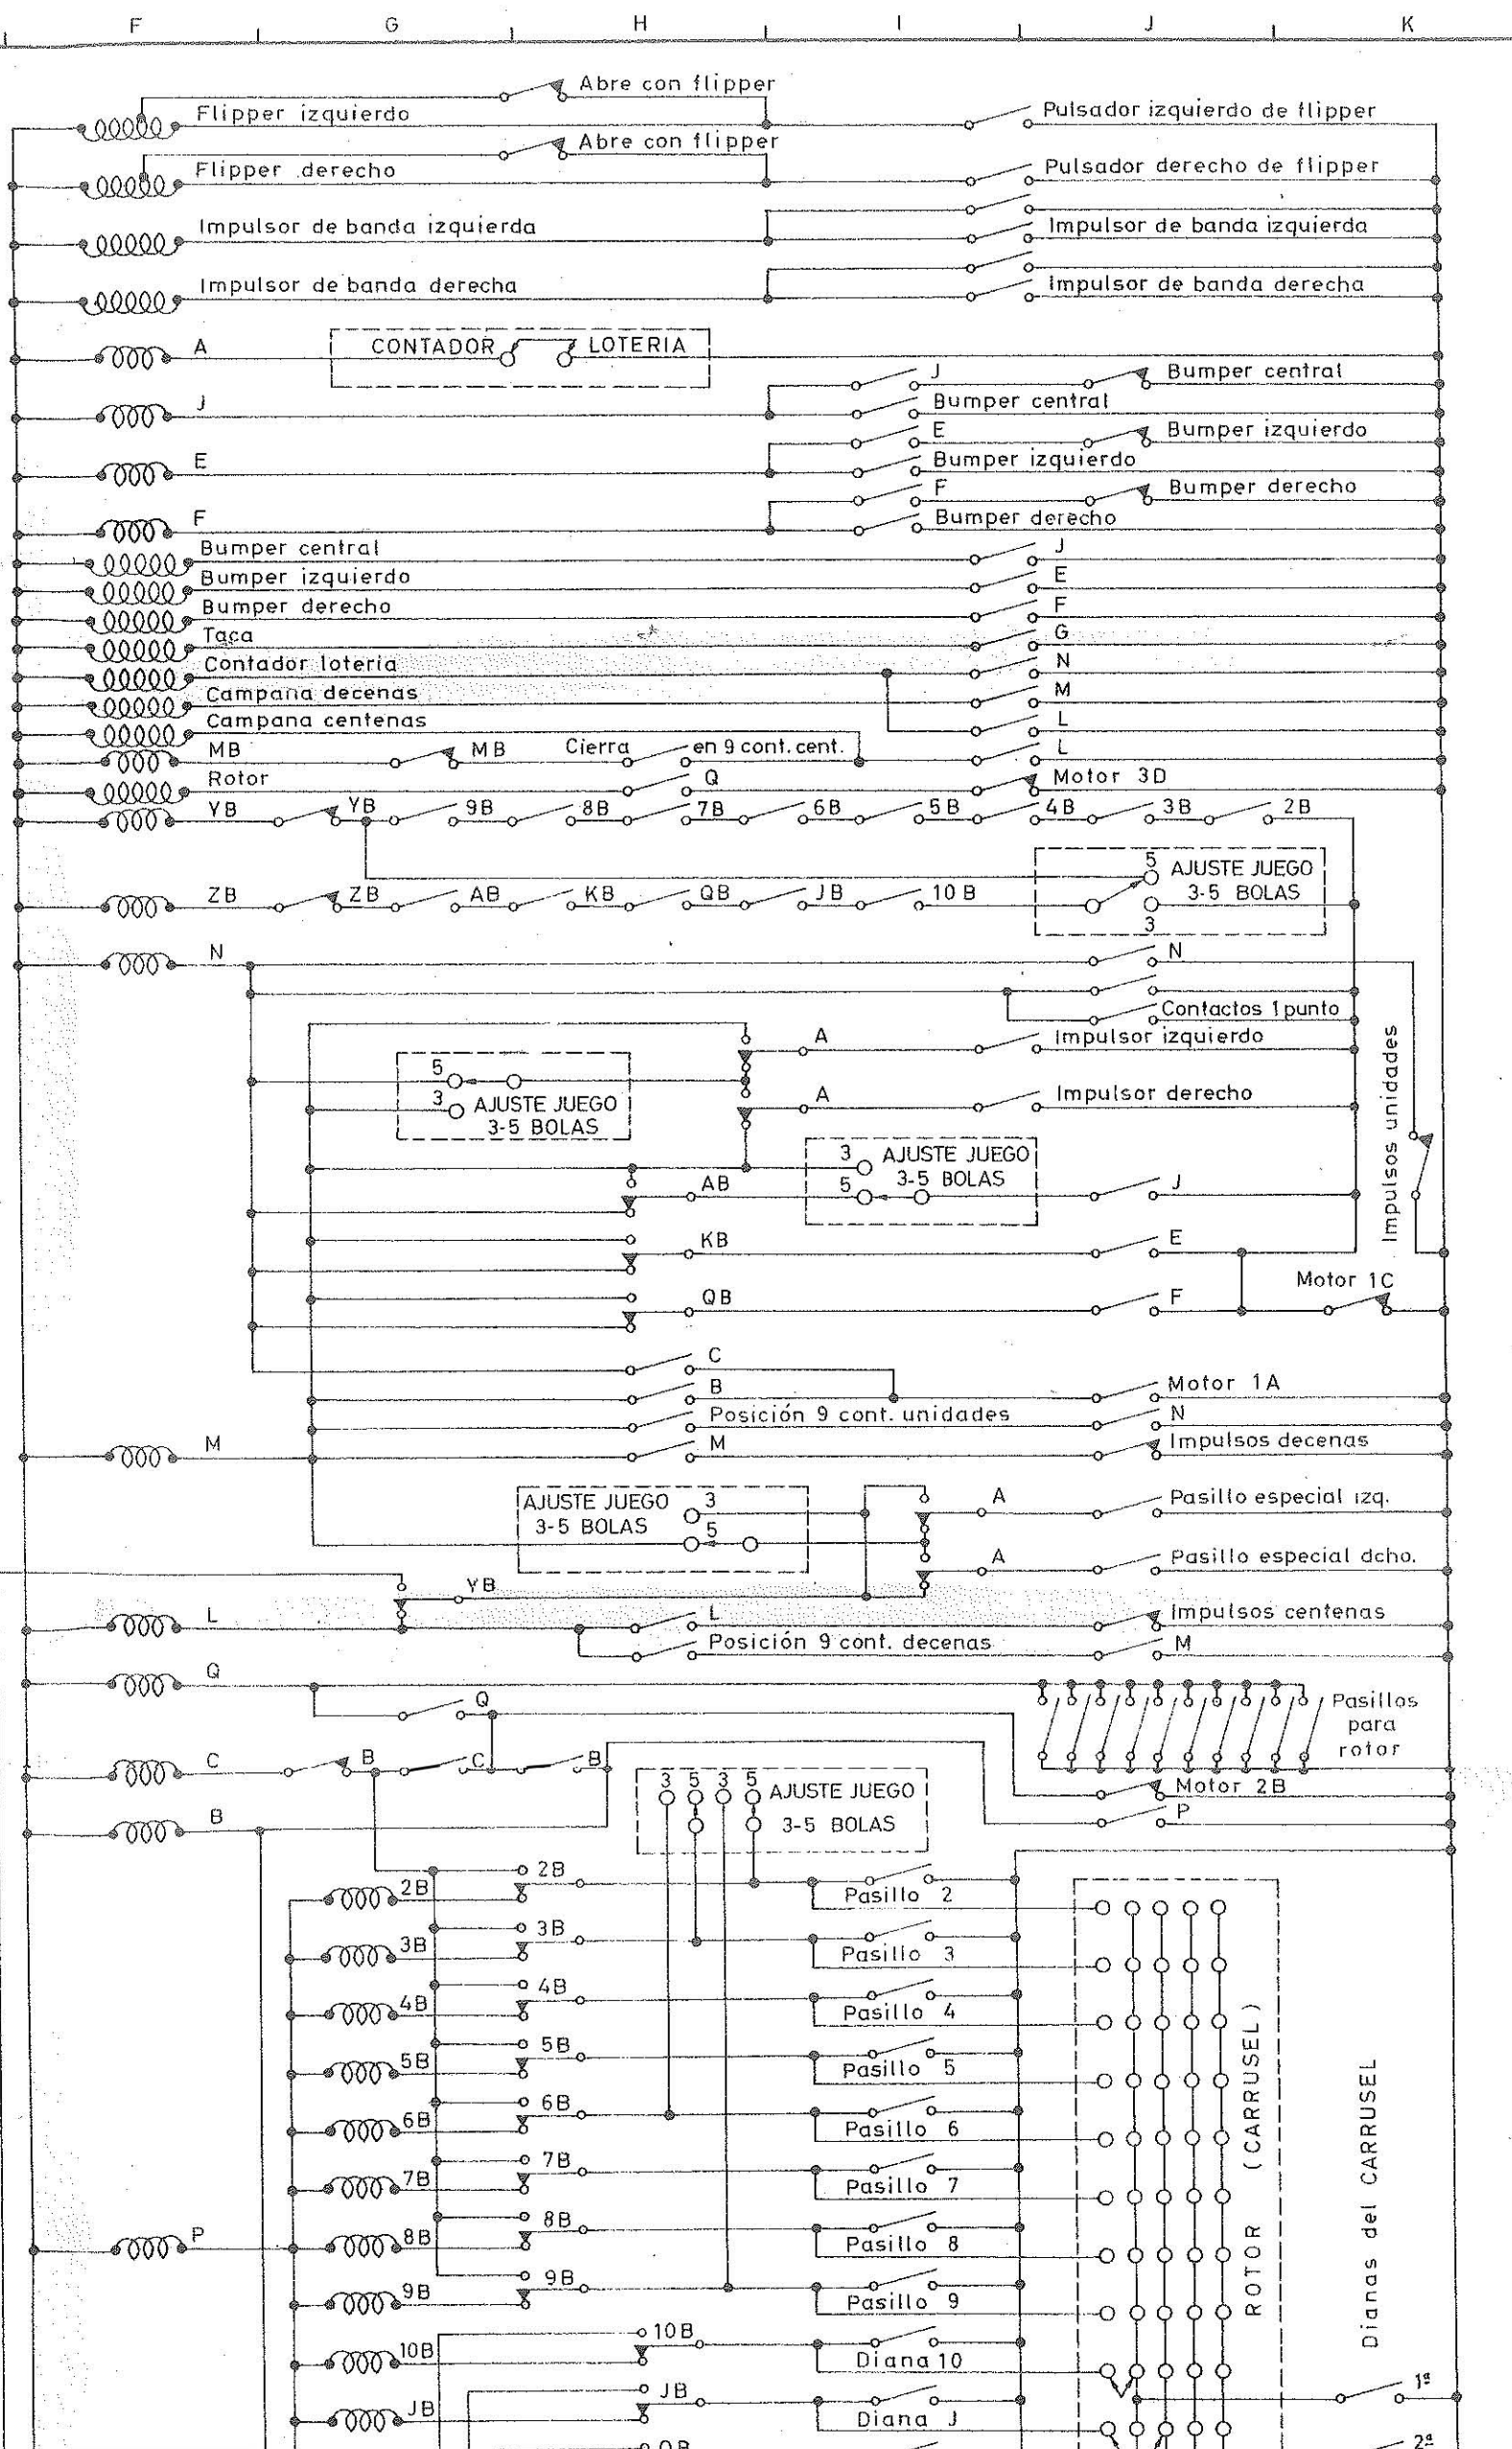 F G H I J K
Abre con flipper
Flipper izquierdo
Pulsador izquierdo de flipper
Abre con flipper
Flipper derecho
Pulsador derecho de flipper
Impulsor de banda izquierda
Impulsor de banda izquierda
Impulsor de banda derecha
Impulsor de banda derecha
A
CONTADOR LOTERIA
J Bumper central
J
Bumper central
E Bumper izquierdo
E
Bumper izquierdo
F Bumper derecho
F
Bumper derecho
Bumper central J
Bumper izquierdo E
Bumper derecho F
Taca G
Contador loteria N
Campana decenas M
Campana centenas L
MB MB Cierra en 9 cont. cent. L
Rotor Q Motor 3D
YB YB 9B 8B 7B 6B 5B 4B 3B 2B
5 AJUSTE JUEGO
3-5 BOLAS
3
ZB ZB AB KB QB JB 10B
N N
Contactos 1 punto
A Impulsor izquierdo
5
3 AJUSTE JUEGO
3-5 BOLAS
A Impulsor derecho
Impulsos unidades
3 AJUSTE JUEGO
5 3-5 BOLAS
AB J
KB E
QB F
Motor 1C
C
B Motor 1A
Posición 9 cont. unidades N
M M Impulsos decenas
AJUSTE JUEGO 3
3-5 BOLAS 5
A Pasillo especial izq.
A Pasillo especial dcho.
YB
L L Impulsos centenas
Posición 9 cont. decenas M
Q
Q
Pasillos
para
rotor
C B C B
Motor 2B
P
B
3 5 3 5 AJUSTE JUEGO
3-5 BOLAS
2B 2B Pasillo 2
3B 3B Pasillo 3
4B 4B Pasillo 4
5B 5B Pasillo 5
6B 6B Pasillo 6
7B 7B Pasillo 7
P 8B 8B Pasillo 8
9B 9B Pasillo 9
10B 10B Diana 10
JB JB Diana J
QB
ROTOR (CARRUSEL)
Dianas del CARRUSEL
1ª
2ª